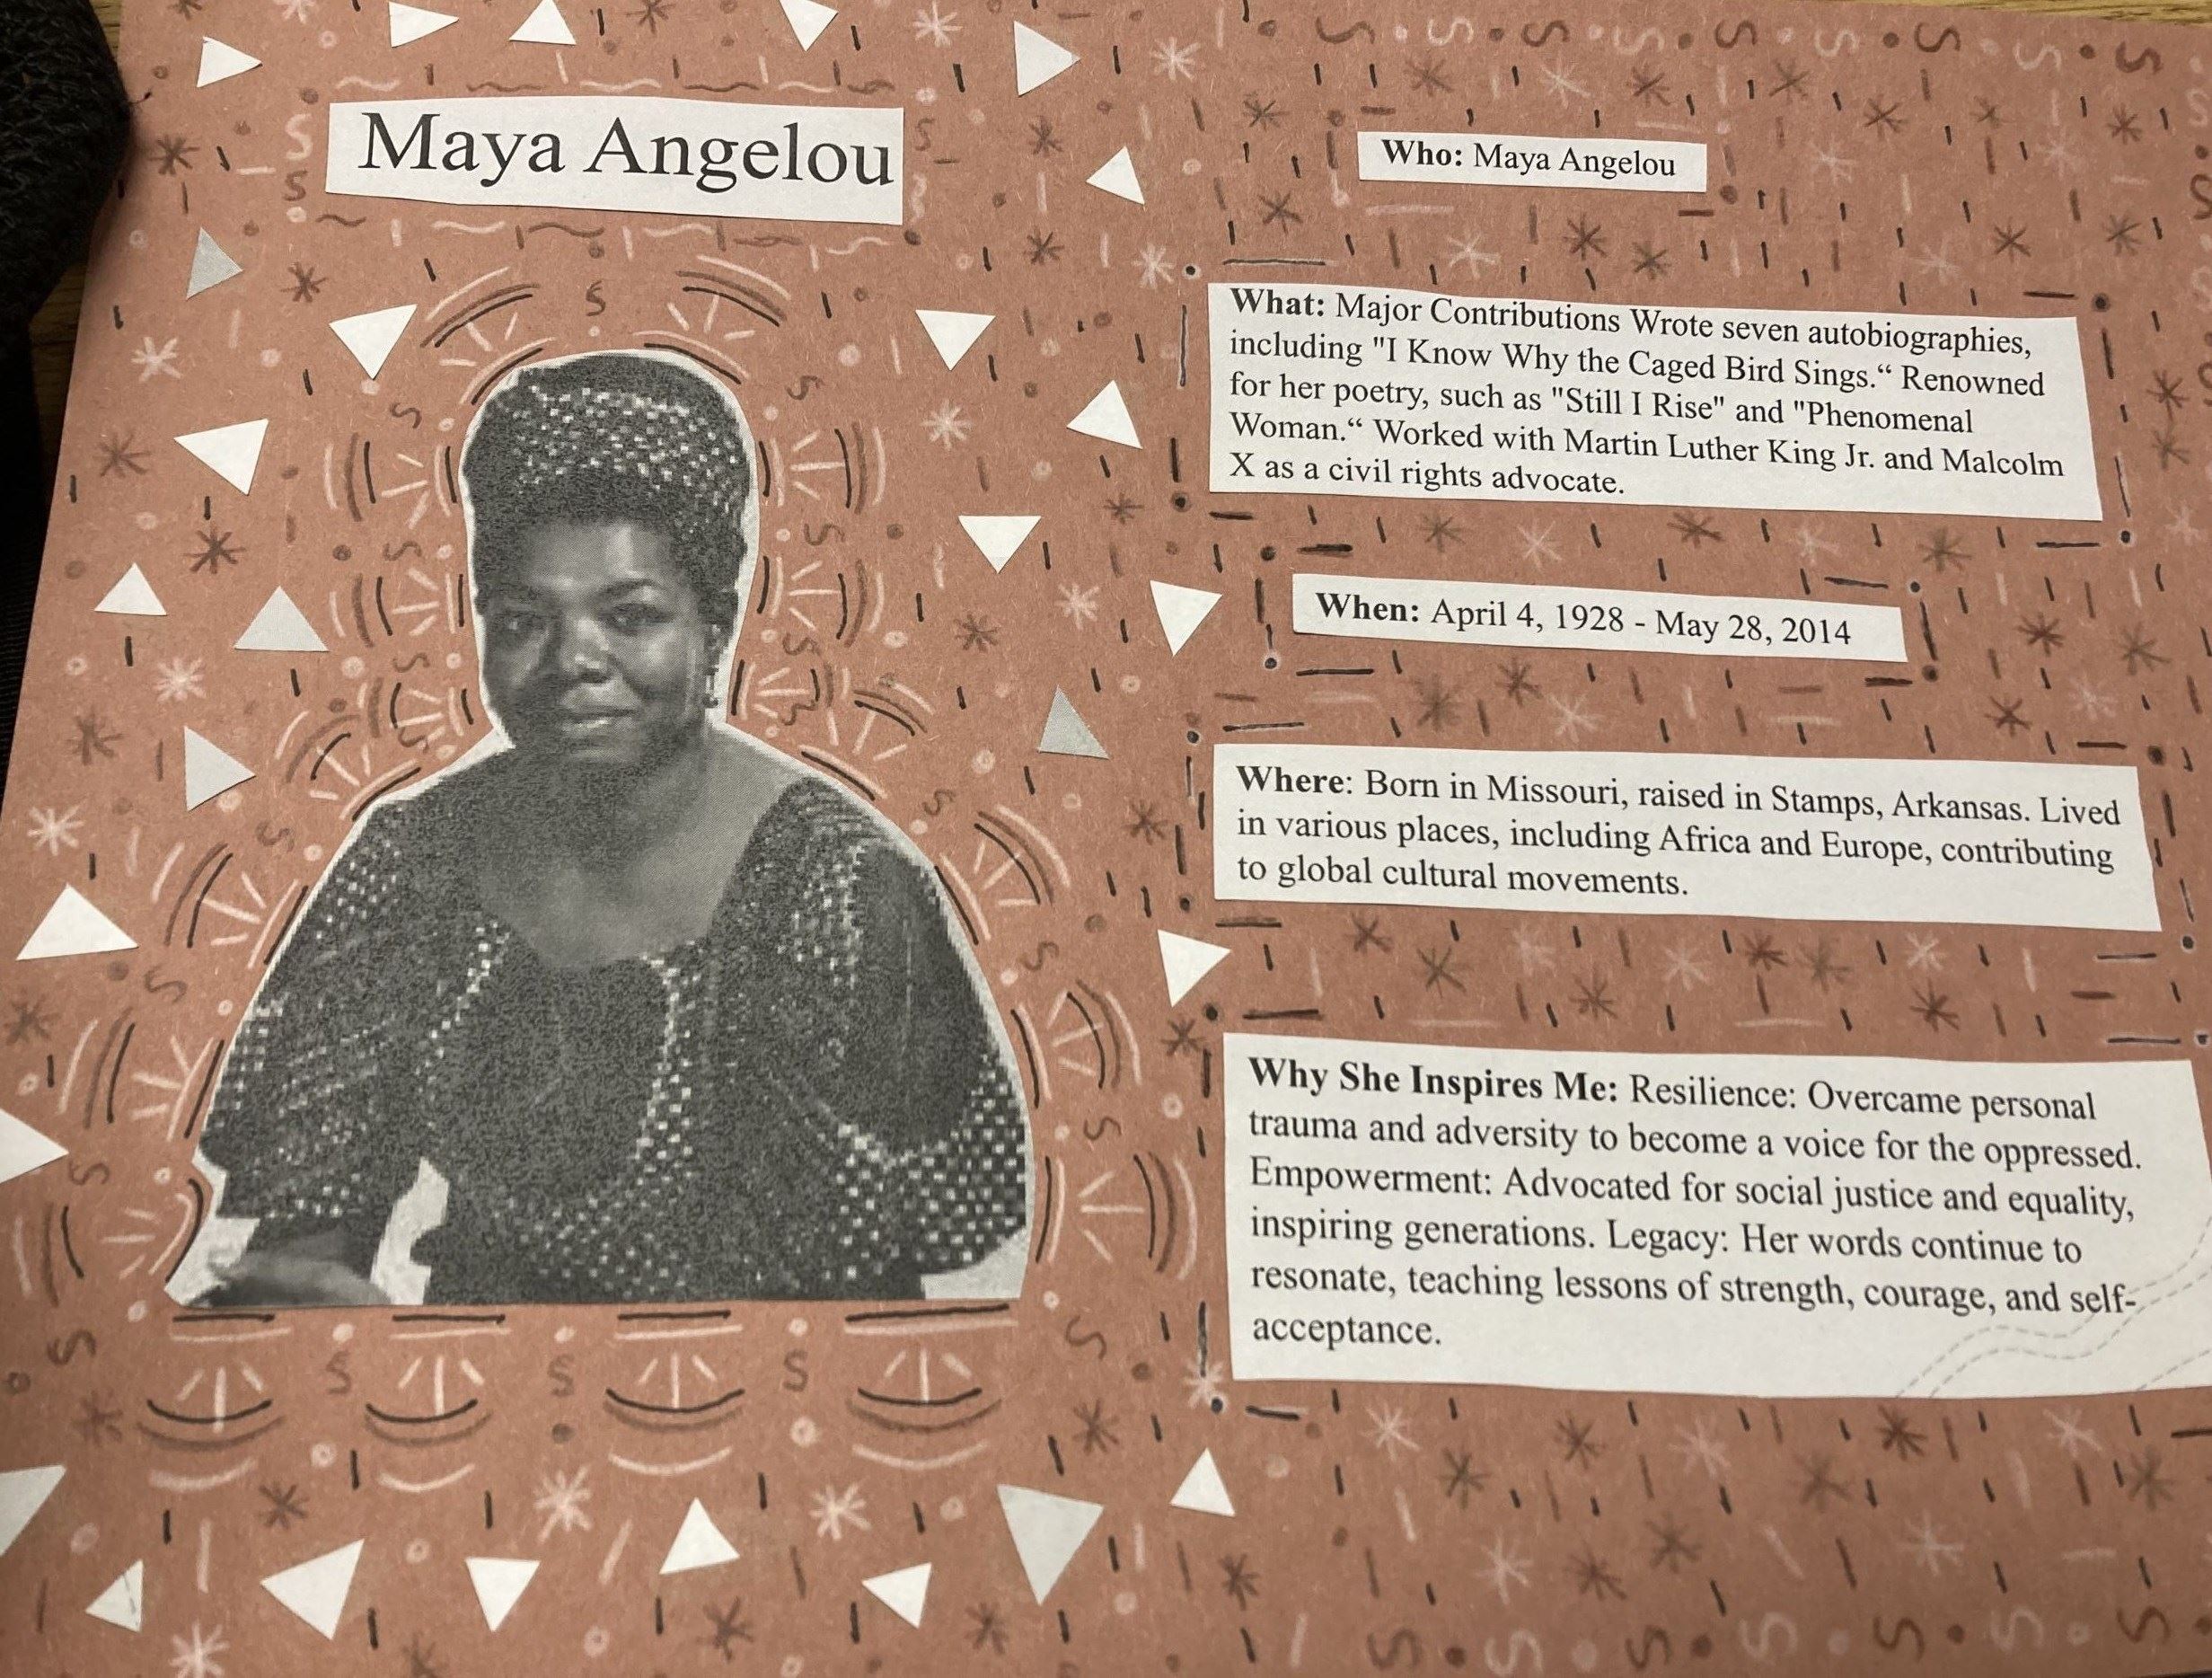 Maya Angelou
Who: Maya Angelou
What: Major Contributions Wrote seven autobiographies,
including "I Know Why the Caged Bird Sings.“ Renowned
for her poetry, such as "Still I Rise" and "Phenomenal
Woman.“ Worked with Martin Luther King Jr. and Malcolm
X as a civil rights advocate.
When: April 4, 1928 - May 28, 2014
Where: Born in Missouri, raised in Stamps, Arkansas. Lived
in various places, including Africa and Europe, contributing
to global cultural movements.
Why She Inspires Me: Resilience: Overcame personal
trauma and adversity to become a voice for the oppressed.
Empowerment: Advocated for social justice and equality,
inspiring generations. Legacy: Her words continue to
resonate, teaching lessons of strength, courage, and self-
acceptance.